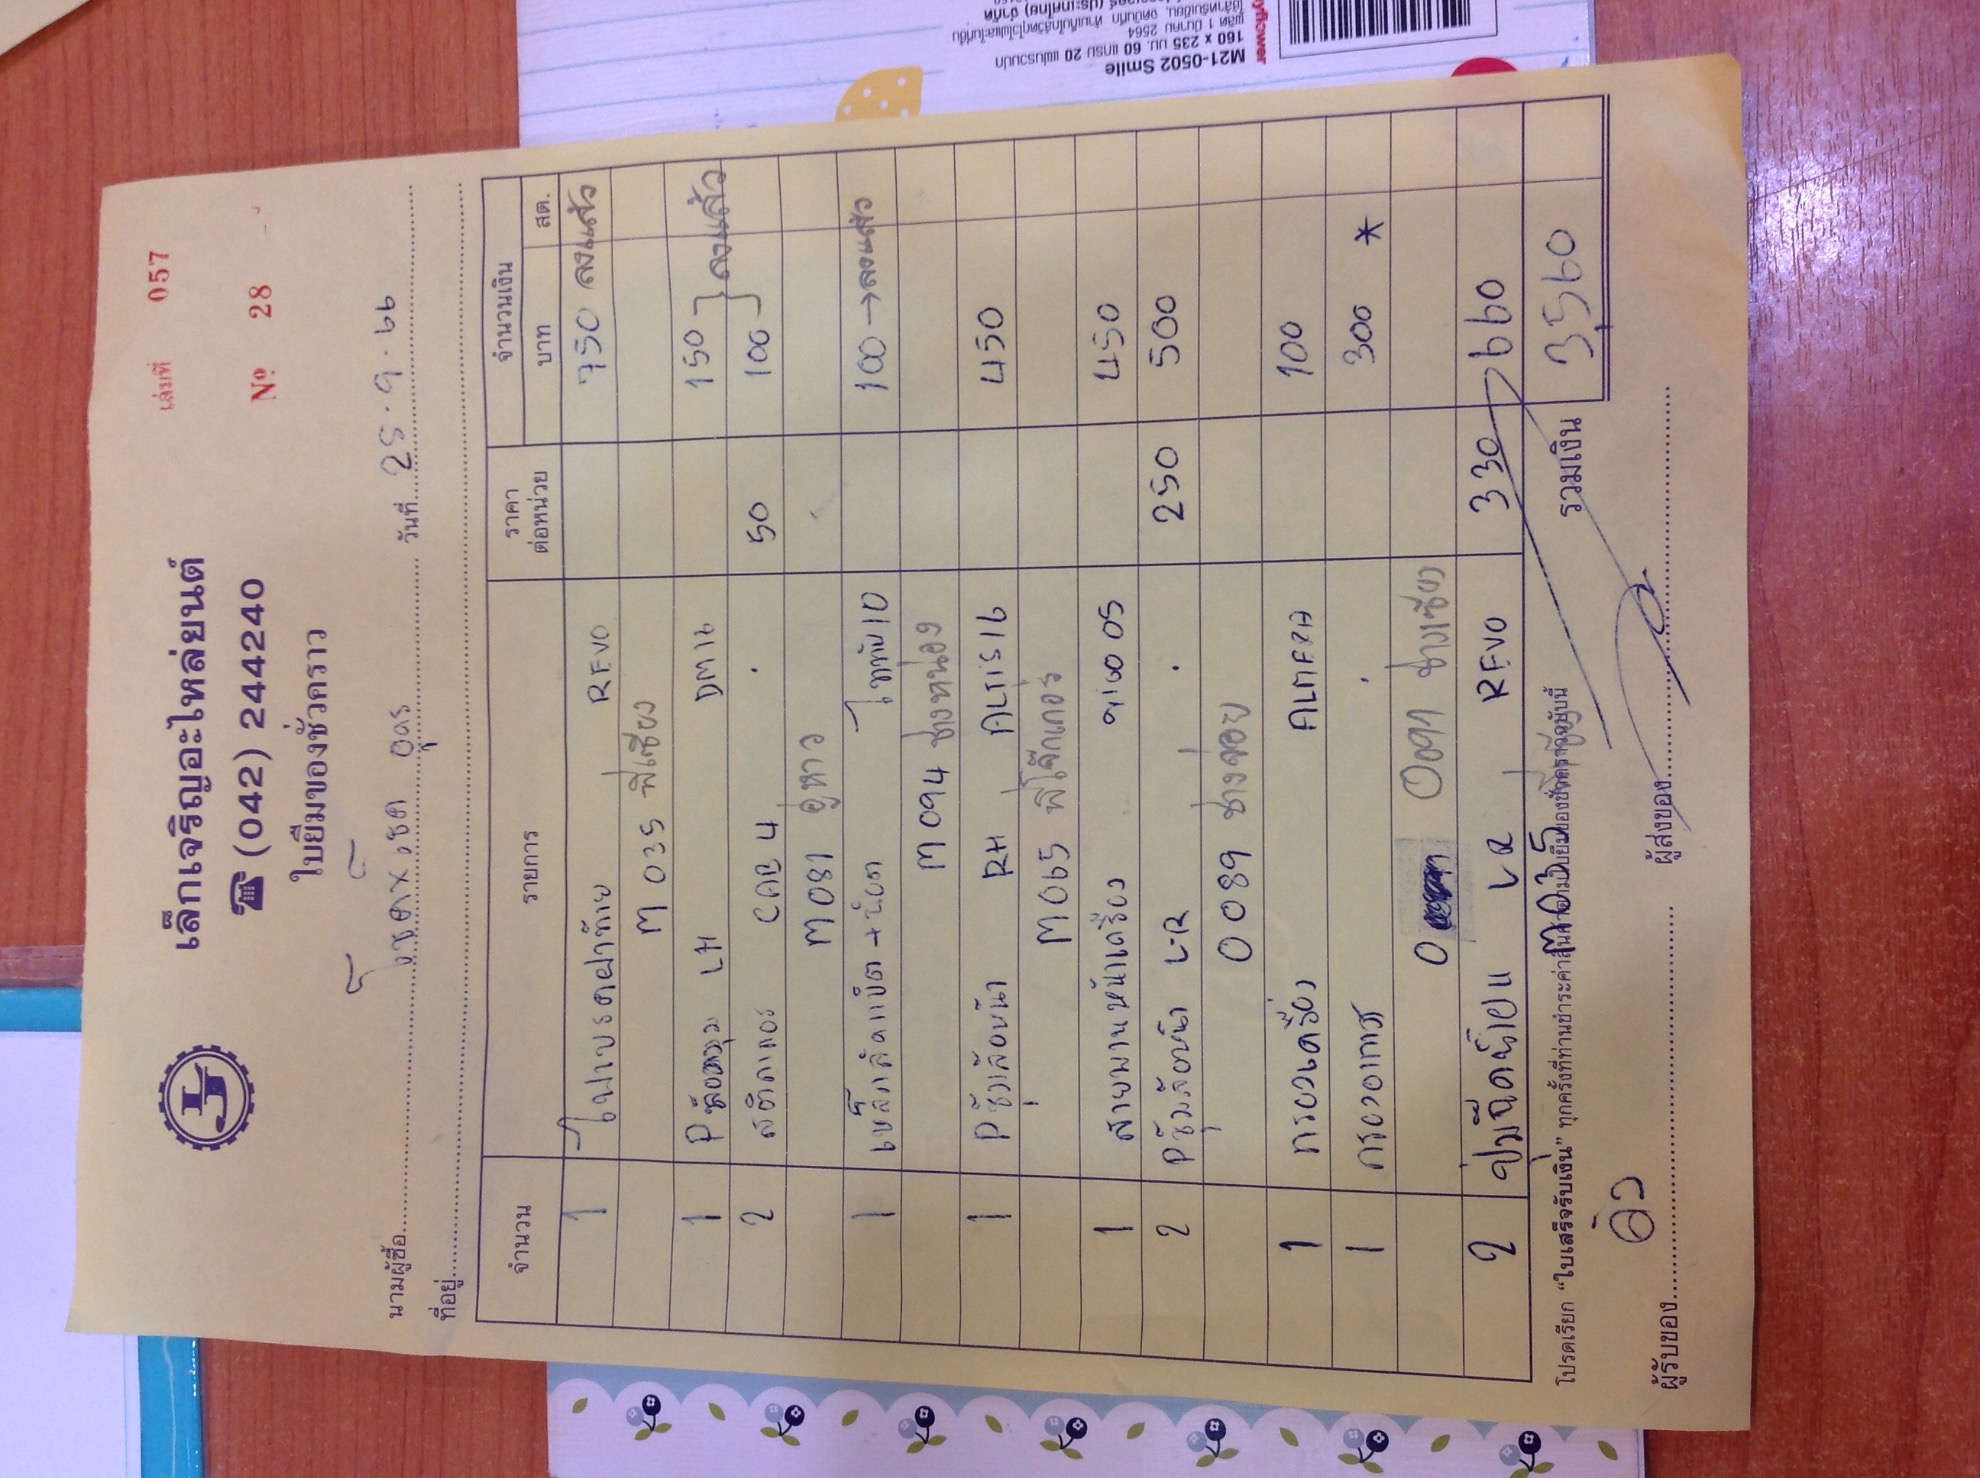 เล่มที่ 057
เล็กเจริญอะไหล่ยนต์
☎ (042) 244240
№ 28
ใบยืมของชั่วคราว
นามผู้ซื้อ วันที่ 25.9.66
ที่อยู่
จำนวน รายการ ราคาต่อหน่วย จำนวนเงิน
บาท สต.
1 ไฟเบรคฝาท้าย REVO 750 ลงแล้ว
M 035 พี่เซียง
1 LH DM12 150 ลงแล้ว
2 สติกเกอร์ CAB 4 50 100
M 081 อู่หาว
1 เหล็กล็อคแบ็ต + น็อต ไททัน 10 100 → ลงแล้ว
M 094 ช่างหน่อง
1 Pซุ้มล้อหน้า RH ALTIS 16 450
M 065 พี่โจ๊กเกอร์
1 สายพานหน้าเครื่อง 05 450
2 Pซุ้มล้อหน้า L-R 250 500
0 089 ช่างจ่อย
1 กรองเครื่อง ALMERA 100
1 กรองอากาศ 300 *
ช่างเซียง
2 ปั๊มฉีดน้ำ L R REVO 330 660
M035
รวมเงิน 3,560
โปรดเรียก "ใบเสร็จรับเงิน" ทุกครั้งที่ท่านชำระค่าสินค้าตามใบยืมของชั่วคราวฉบับนี้
ผู้รับของ ผู้ส่งของ
M21-0502 Smile
160 x 235 มม. 60 แกรม 20 แผ่น